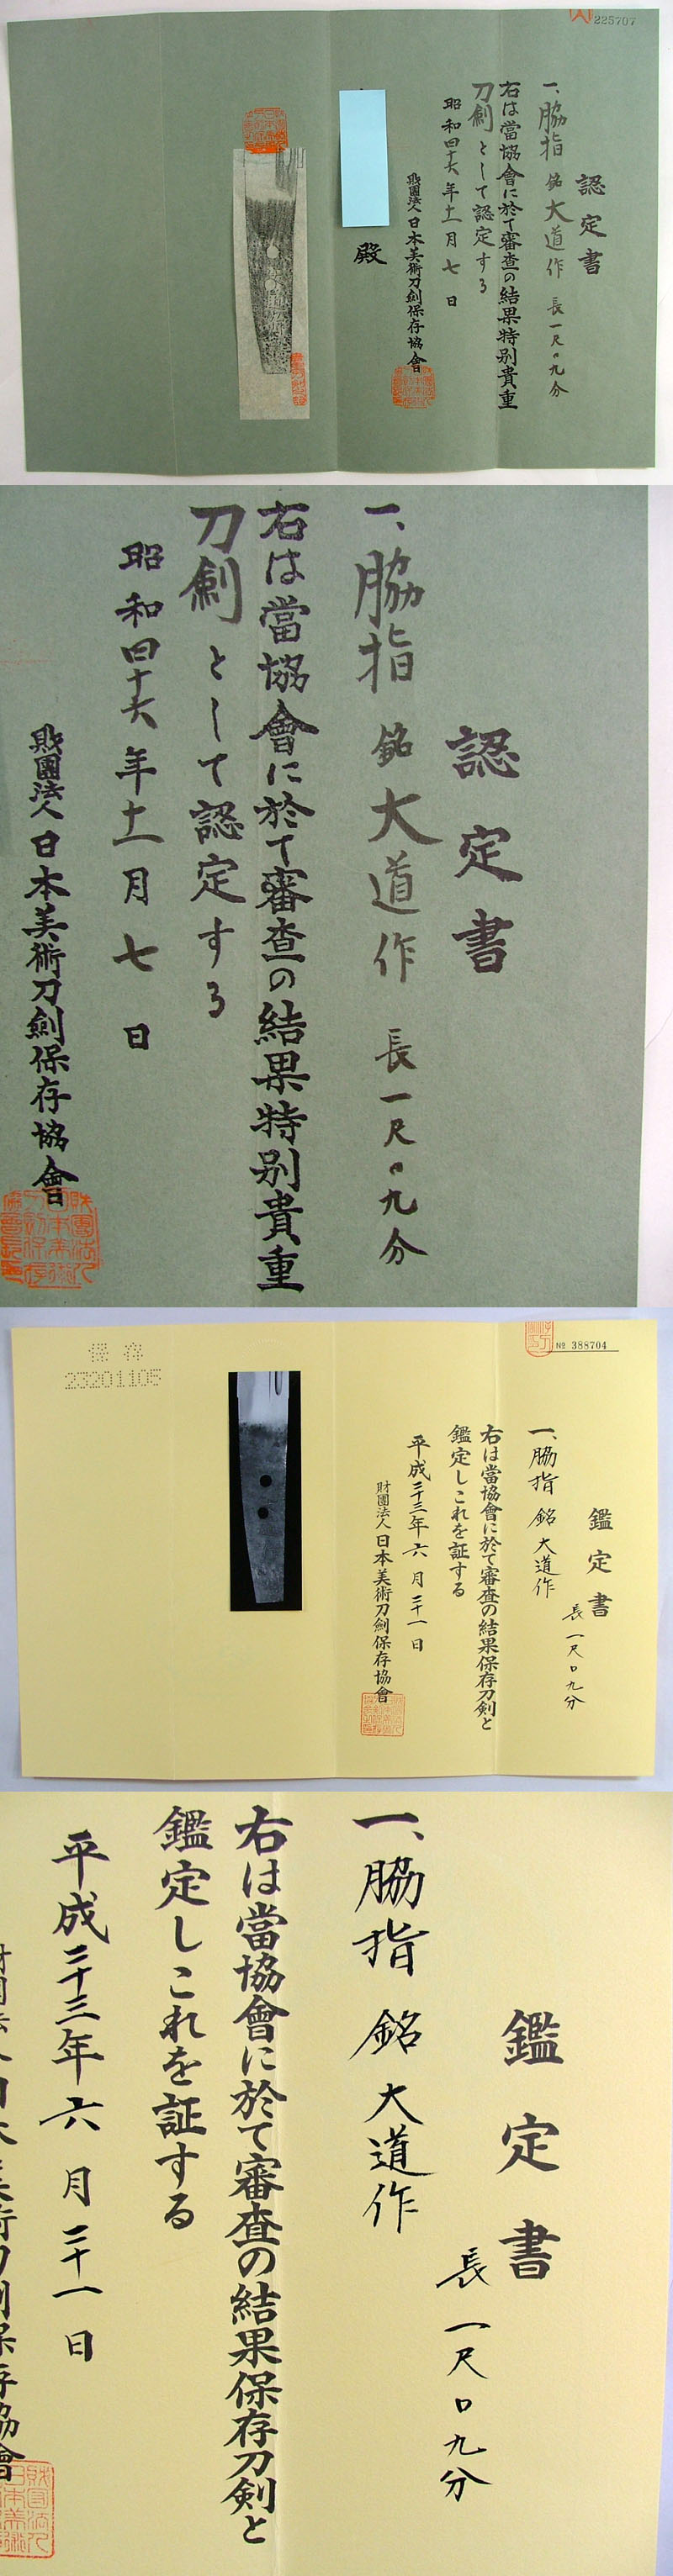 225707
認定書
一、脇指 銘 大道作 長一尺〇九分
右は當協會に於て審査の結果特別貴重
刀劍として認定する
昭和四十六年十一月七日
財團法人日本美術刀劍保存協會
殿
認定書
一、脇指 銘 大道作 長一尺〇九分
右は當協會に於て審査の結果特別貴重
刀劍として認定する
昭和四十六年十一月七日
財團法人日本美術刀劍保存協會
№ 388704
鑑定書
一、脇指 銘 大道作
長一尺〇九分
右は當協會に於て審査の結果保存刀剣と
鑑定しこれを証する
平成二十三年六月二十一日
財團法人日本美術刀劍保存協會
保存
23201105
鑑定書
一、脇指 銘 大道作
長一尺〇九分
右は當協會に於て審査の結果保存刀剣と
鑑定しこれを証する
平成二十三年六月二十一日